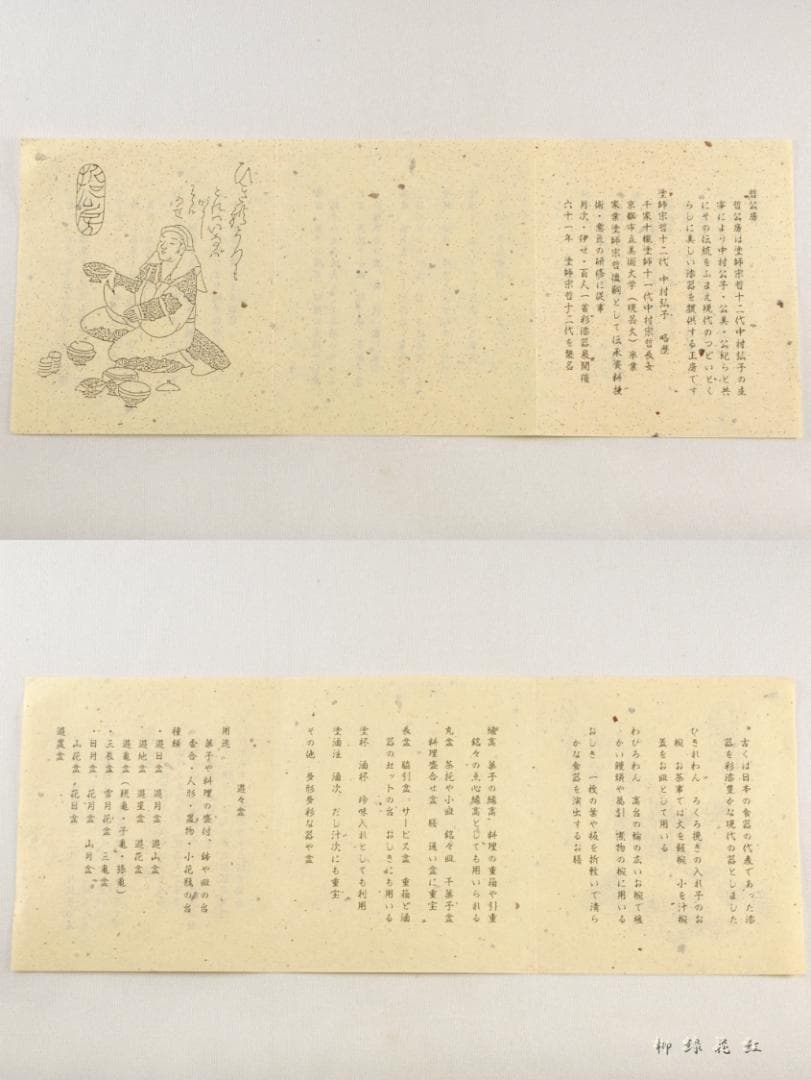 哲公房
哲公房は塗師宗哲十二代中村弘子の主
宰により中村公子・公美・公紀らと共
にその伝統をふまえ現代のつどいとく
らしに美しい漆器を提供する工房です
塗師宗哲十二代 中村弘子 略歴
千家十職塗師十一代中村宗哲長女
京都市立美術大学(現芸大)卒業
家業塗師宗哲後嗣として伝承資料技
術・意匠の研修に従事
月次・伊せ・百人一首彩漆器展開催
六十一年 塗師宗哲十二代を襲名
古くは日本の食器の代表であった漆
器を彩漆豊かな現代の器としました
ひきれわん ろくろ挽きの入れ子のお
椀 お茶事では大を飯椀 小を汁椀
蓋をお皿として用いる
わびろわん 高台の輪の広いお椀で
かい饅頭や葛引 煮物の椀に用いる
おしき 一枚の葉や板を折敷いて清ら
かな食器を演出するお膳
縁高 菓子の縁高 料理の重箱や引重
銘々の点心縁高としても用いられる
丸盆 茶托や小皿 銘々皿 干菓子盆
料理盛合せ盆 膳 通い盆に重宝
長盆 脇引盆 サービス盆 重箱と酒
器のセットの台 おしきにも用いる
塗杯 酒杯 珍味入れとしても利用
塗酒注 酒次 だし汁次にも重宝
その他 多形多彩な器や盆
遊々盆
用途
菓子や料理の盛付、鉢や皿の台
香合・人形・置物・小花瓶の台
種類
・遊日盆 遊月盆 遊山盆
遊地盆 遊星盆 遊花盆
遊亀盆(親亀・子亀・孫亀)
・三友盆 雪月花盆 三亀盆
・日月盆 花月盆 山月盆
山花盆 花日盆
遊農盆
柳緑花紅